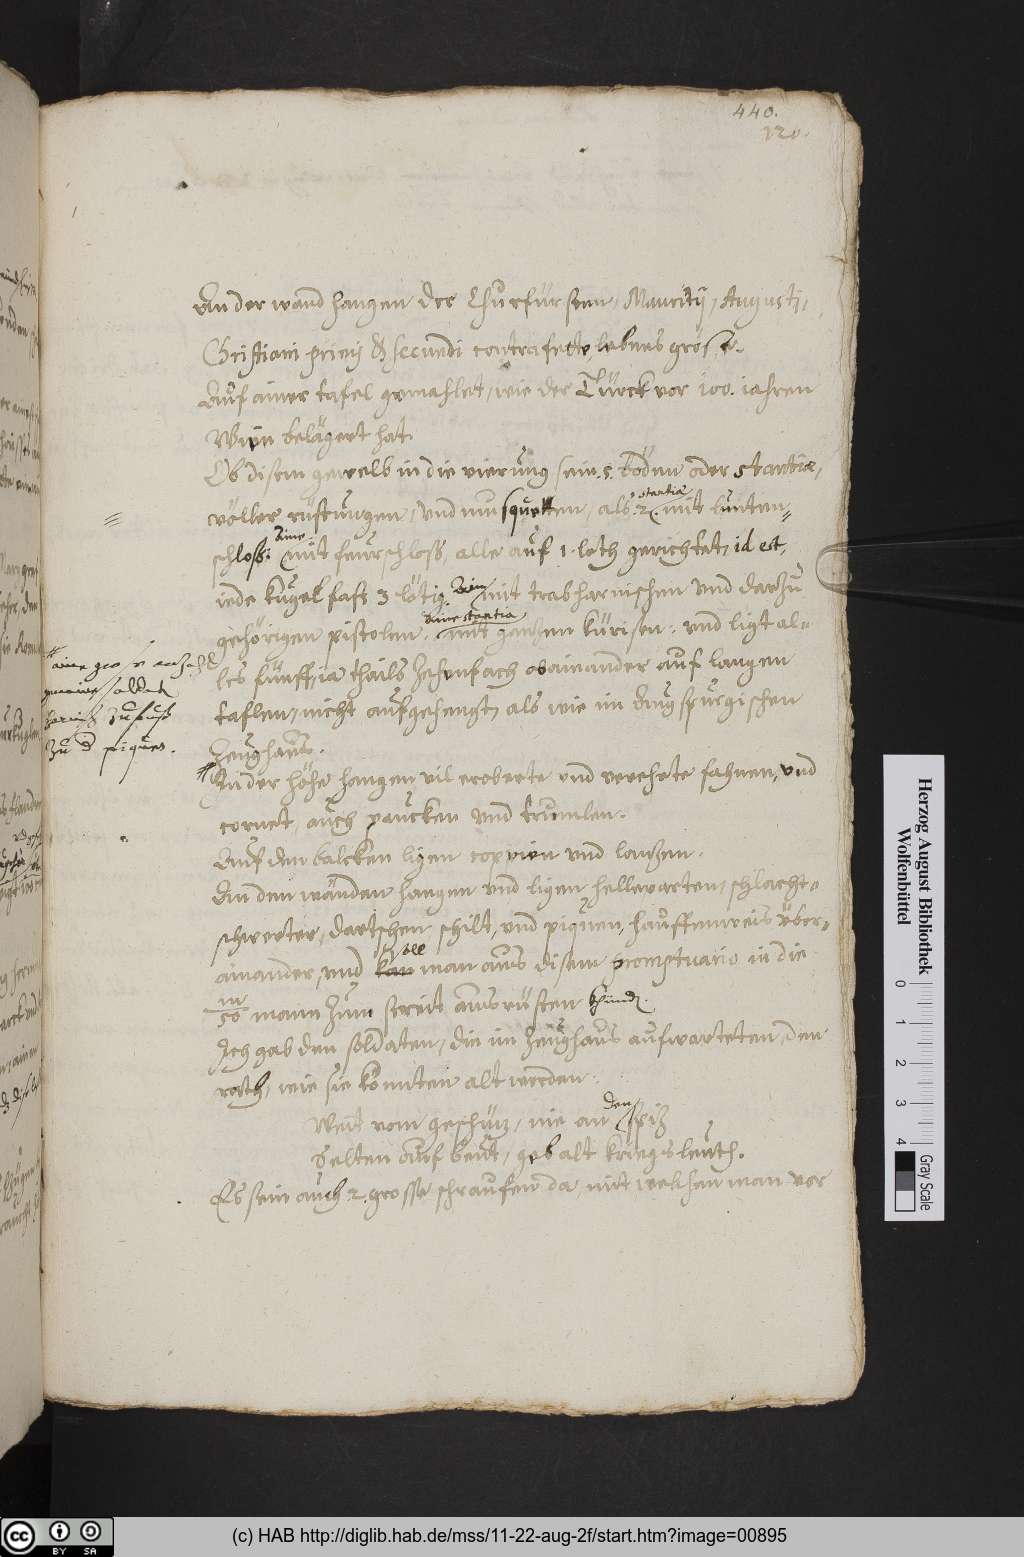 440.
120.
An der wand hangen der Churfürsten, Mauritij, Augusti,
Christiani primj & secundi contrafette lebens grösse.
Auf ainer tafel gemahlet, wie der Türck vor 100. iahren
Wien belägert hat.
Ob disem gewelb in die vierung sein .5. böden oder stantiæ,
völler rüstungen, und musquetten, als .2. stantiæ mit lunten=
schloss: Aine mit feurschloss, alle auf 1. loth gerichtet, id est,
iede kugel fast 3 lötig. Ain mit trabharnischen und darzu
gehörigen pistolen. Aine stantia mit gantzen kürisen. und ligt al=
les fünff, ia thails zehenfach obainander auf langen
taflen, nicht aufgehengt, als wie im Augspurgischen
Zeughaus.
# aine grosse anzahl
gemaine soldaten
harnisch zufuss
zu piquen.
# In der höhe hangen vil eroberte und verehrte fahnen, und
cornet, auch paucken und trumlen.
Auf den balcken ligen coppien und lanzen.
An den wänden hangen und ligen hellevarten, schlacht=
schwerter, dartschen schilt, und piquen, hauffenweis über=
ainander, und kan soll man aus disem promptuario in die
m
50 mann zum streit ausrüsten khünden.
Ich gab den soldaten, die im zeüghaus aufwarteten, den
rath, wie sie könnten alt werden.
Weit vom geschüz, nie an den spiz
Selten auf beut, geb alt kriegsleuth.
Es sein auch 2. grosse schraufen da, mit welchen man vor
Herzog August Bibliothek
Wolfenbüttel
0 1 2 3 4
Gray Scale
cc BY SA
(c) HAB http://diglib.hab.de/mss/11-22-aug-2f/start.htm?image=00895